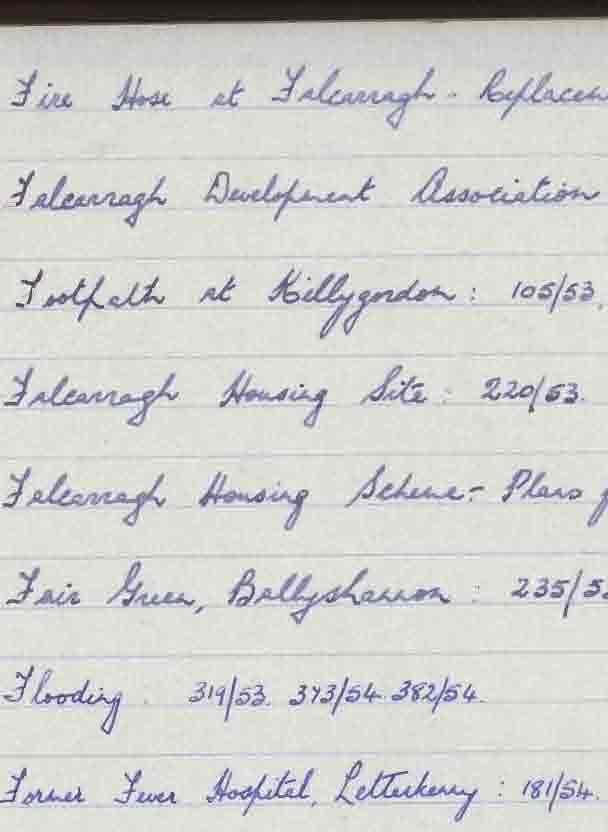 Fire Hose at Falcarragh - Replacem
Falcarragh Development Association
Footpath at Killygordon : 105/53.
Falcarragh Housing Site : 220/53.
Falcarragh Housing Scheme - Plans f
Fair Green, Ballyshannon : 235/53
Flooding . 319/53. 373/54. 382/54.
Former Fever Hospital, Letterkenny : 181/54.